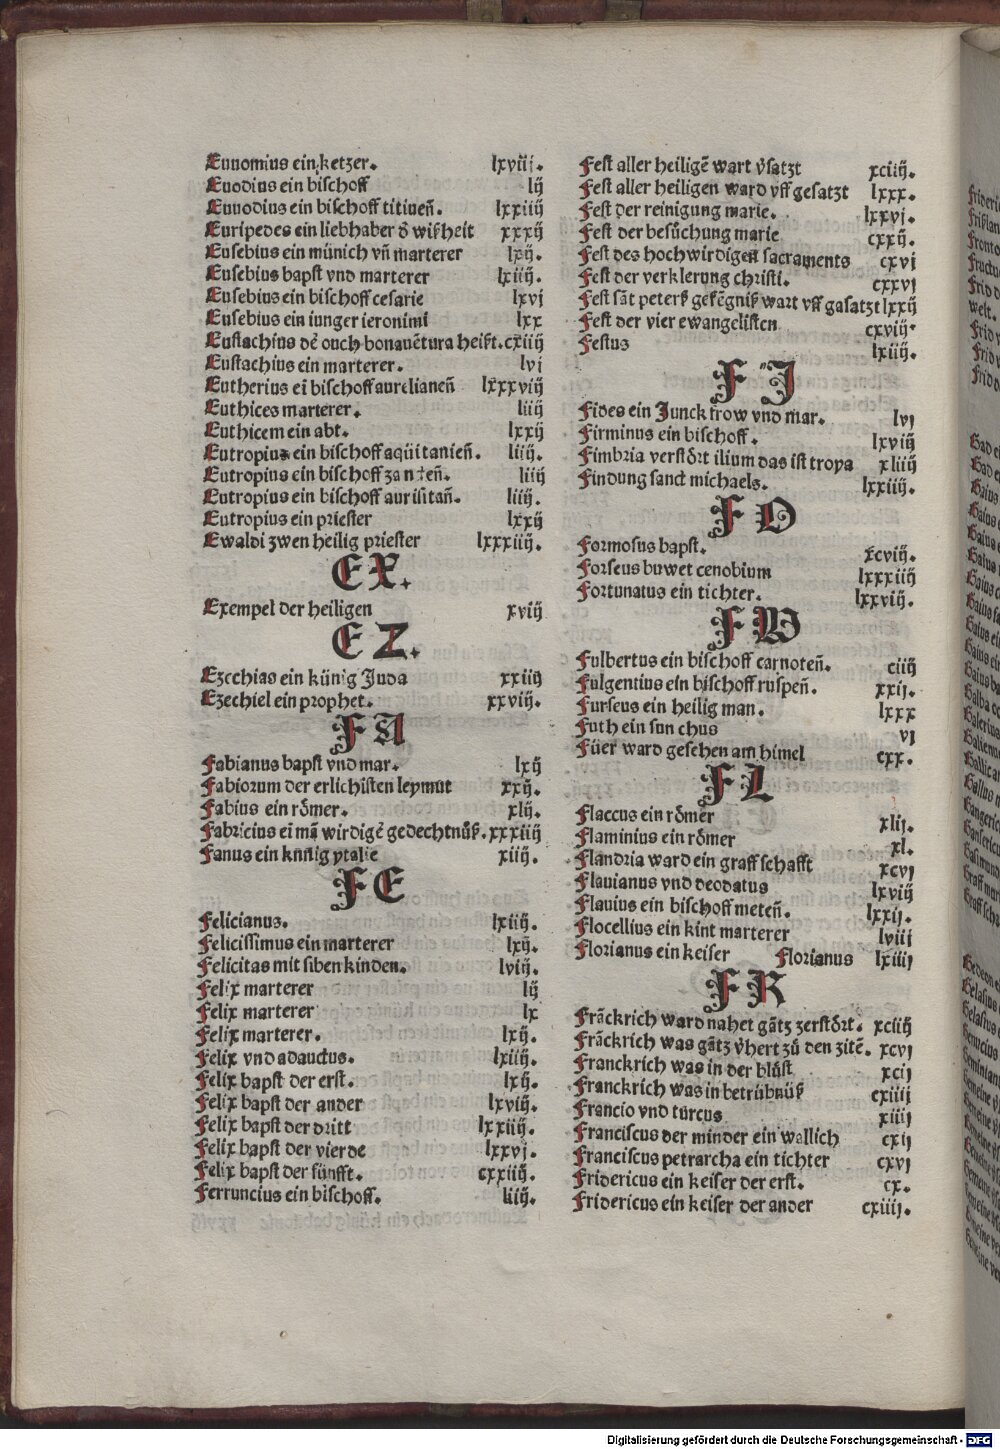 Euuomius ein ketzer. lxviij.
Euodius ein bischoff lij
Euuodius ein bischoff titiuen̄. lxxiiij
Euripedes ein liebhaber d̓ wißheit xxxij
Eusebius ein münich vn̄ marterer lxij.
Eusebius bapst vnd marterer lxiij.
Eusebius ein bischoff cesarie lxvj
Eusebius ein iunger ieronimi lxx
Eustachius dē ouch bonauētura heißt. cxiij
Eustachius ein marterer. lvj
Eutherius ei bischoff aurelianen̄ lxxxvij
Euthices marterer. liij
Euthicem ein abt. lxxij
Eutropius ein bischoff aqüitanien̄. liij.
Eutropius ein bischoff zanten̄. liij
Eutropius ein bischoff aurisitan̄. liij.
Eutropius ein priester lxxij
Ewaldi zwen heilig priester lxxxiij.
EX.
Exempel der heiligen xviij
EZ.
Ezechias ein künig Juda xxiiij
Ezechiel ein prophet. xxviij.
FA
Fabianus bapst vnd mar. lxij
Fabiorum der erlichisten leymut xxij.
Fabius ein rȍmer. xlij.
Fabricius ei mā wirdigē gedechtnüß. xxxiij
Fanus ein künig ytalie xiij.
FE
Felicianus. lxiij.
Felicissimus ein marterer lxij.
Felicitas mit siben kinden. lviij.
Felix marterer lij
Felix marterer lx
Felix marterer. lxij.
Felix vnd adauctus. lxiij.
Felix bapst der erst. lxij.
Felix bapst der ander lxviij.
Felix bapst der dritt lxxiij.
Felix bapst der vierde lxxvj.
Felix bapst der fünfft. cxxiij.
Ferruncius ein bischoff. liij.
Fest aller heiligē wart v̓satzt xciij.
Fest aller heiligen ward vff gesatzt lxxx.
Fest der reinigung marie. lxxvj.
Fest der besůchung marie cxxij.
Fest des hochwirdigen sacraments cxvj
Fest der verklerung christi. cxxvj
Fest sāt peterß gefēgniß wart vff gasatzt lxxij
Fest der vier ewangelisten cxviij.
Festus lxiij.
FJ
Fides ein Junckfrow vnd mar. lvj
Firminus ein bischoff. lxviij
Fimbria verstȍrt ilium das ist troya xliij
Findung sanct michaels. lxxiij.
FO
Formosus bapst. xcviij.
Forseus buwet cenobium lxxxiij
Fortunatus ein tichter. lxxviij.
FV
Fulbertus ein bischoff carnoten̄. ciij
Fulgentius ein bischoff ruspen̄. xxij.
Furseus ein heilig man. lxxx
Futh ein sun chus vj
Füer ward gesehen am himel cxx.
FL
Flaccus ein rȍmer xlij.
Flaminius ein rȍmer xl.
Flandria ward ein graffschafft xcvj
Flauianus vnd deodatus lxviij
Flauius ein bischoff meten̄. lxxij.
Flocellius ein kint marterer lviij
Florianus ein keiser Florianus lxiij
FR
Frāckrich ward nahet gātz zerstȍrt. xciij
Frāckrich was gātz v̓hert zů den zitē. xcvj
Franckrich was in der blůst xcij
Franckrich was in betrübnüß cxiiij
Francio vnd turcus xiiij
Franciscus der minder ein wallich cxij
Franciscus petrarcha ein tichter cxvj
Fridericus ein keiser der erst. cx.
Fridericus ein keiser der ander cxiiij.
Digitalisierung gefördert durch die Deutsche Forschungsgemeinschaft - DFG